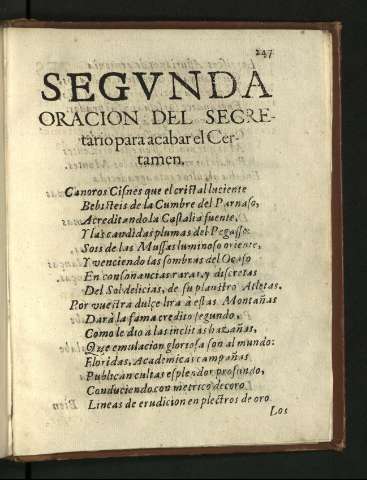 247
SEGVNDA
ORACION DEL SECRE-
tario para acabar el Cer-
tamen.
Canoros Cisnes que el cristal luciente
Bebisteis de la Cumbre del Parnaso,
Acreditando la Castalia fuente,
Y las candidas plumas del Pegasso:
Sois de las Mussas luminoso oriente,
Y venciendo las sombras del Ocaso
En consonancias raras, y discretas
Del Sol delicias, de su plaustro Atletas.
Por vuestra dulçe lira à estas Montañas
Darà la fama credito segundo,
Como le dio a las inclitas hazañas,
Que emulacion gloriosa son al mundo:
Floridas, Academicas campañas
Publican cultas esplendor profundo,
Conduciendo con metrico decoro
Lineas de erudicion en plectros de oro
Los